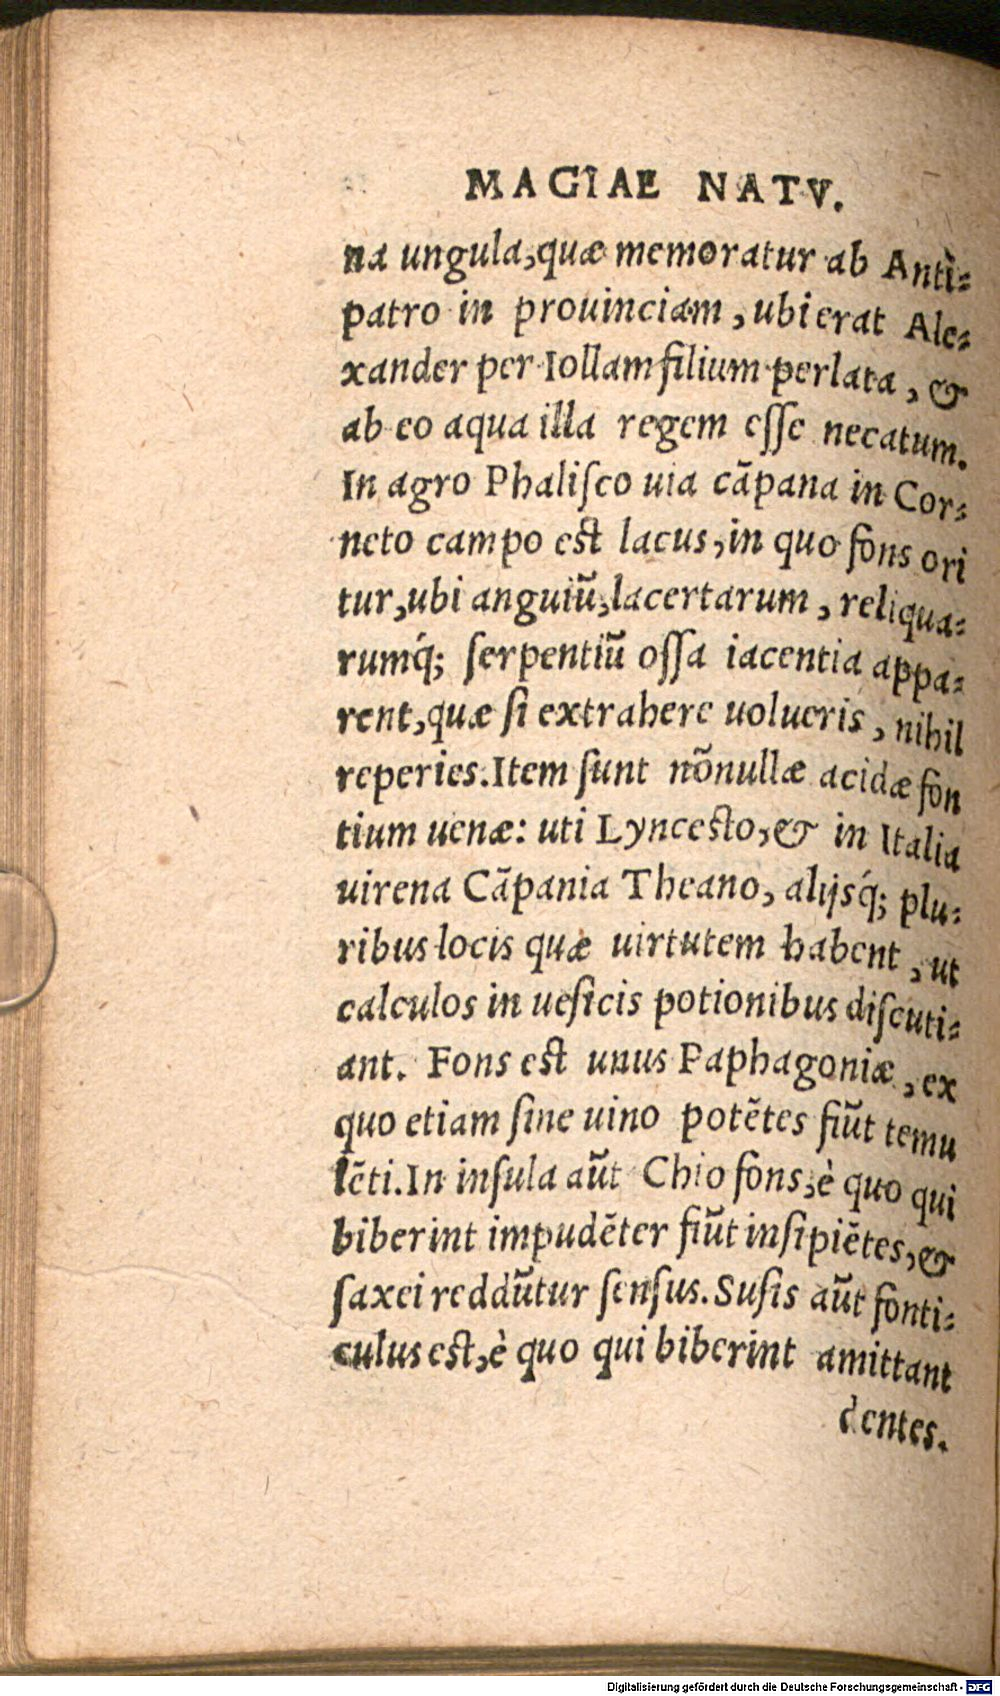 MAGIAE NATV.
na ungula,quæ memoratur ab Anti-
patro in prouinciam, ubi erat Ale-
xander per Iollam filium perlata, &
ab eo aqua illa regem esse necatum.
In agro Phalisco uia cãpana in Cor-
neto campo est lacus,in quo fons ori
tur,ubi anguiũ,lacertarum, reliqua-
rumq́; serpentiũ ossa iacentia appa-
rent,quæ si extrahere uolueris, nihil
reperies.Item sunt nõnullæ acidæ fon
tium uenæ: uti Lyncesto,& in Italia
uirena Cãpania Theano, alijsq́; plu-
ribus locis quæ uirtutem habent, ut
calculos in uesicis potionibus discuti-
ant. Fons est unus Paphagoniæ, ex
quo etiam sine uino potẽtes fiũt temu
lẽti.In insula aũt Chio fons,è quo qui
biberint impudẽter fiũt insipiẽtes,&
saxei reddũtur sensus.Susis aũt fonti-
culus est,è quo qui biberint amittant
dentes.
Digitalisierung gefördert durch die Deutsche Forschungsgemeinschaft - DFG